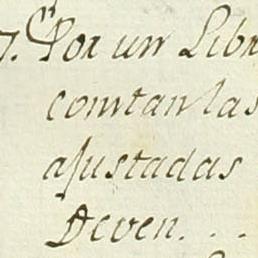 7. Por un Libr
constan las
ajustadas
Deven. . .